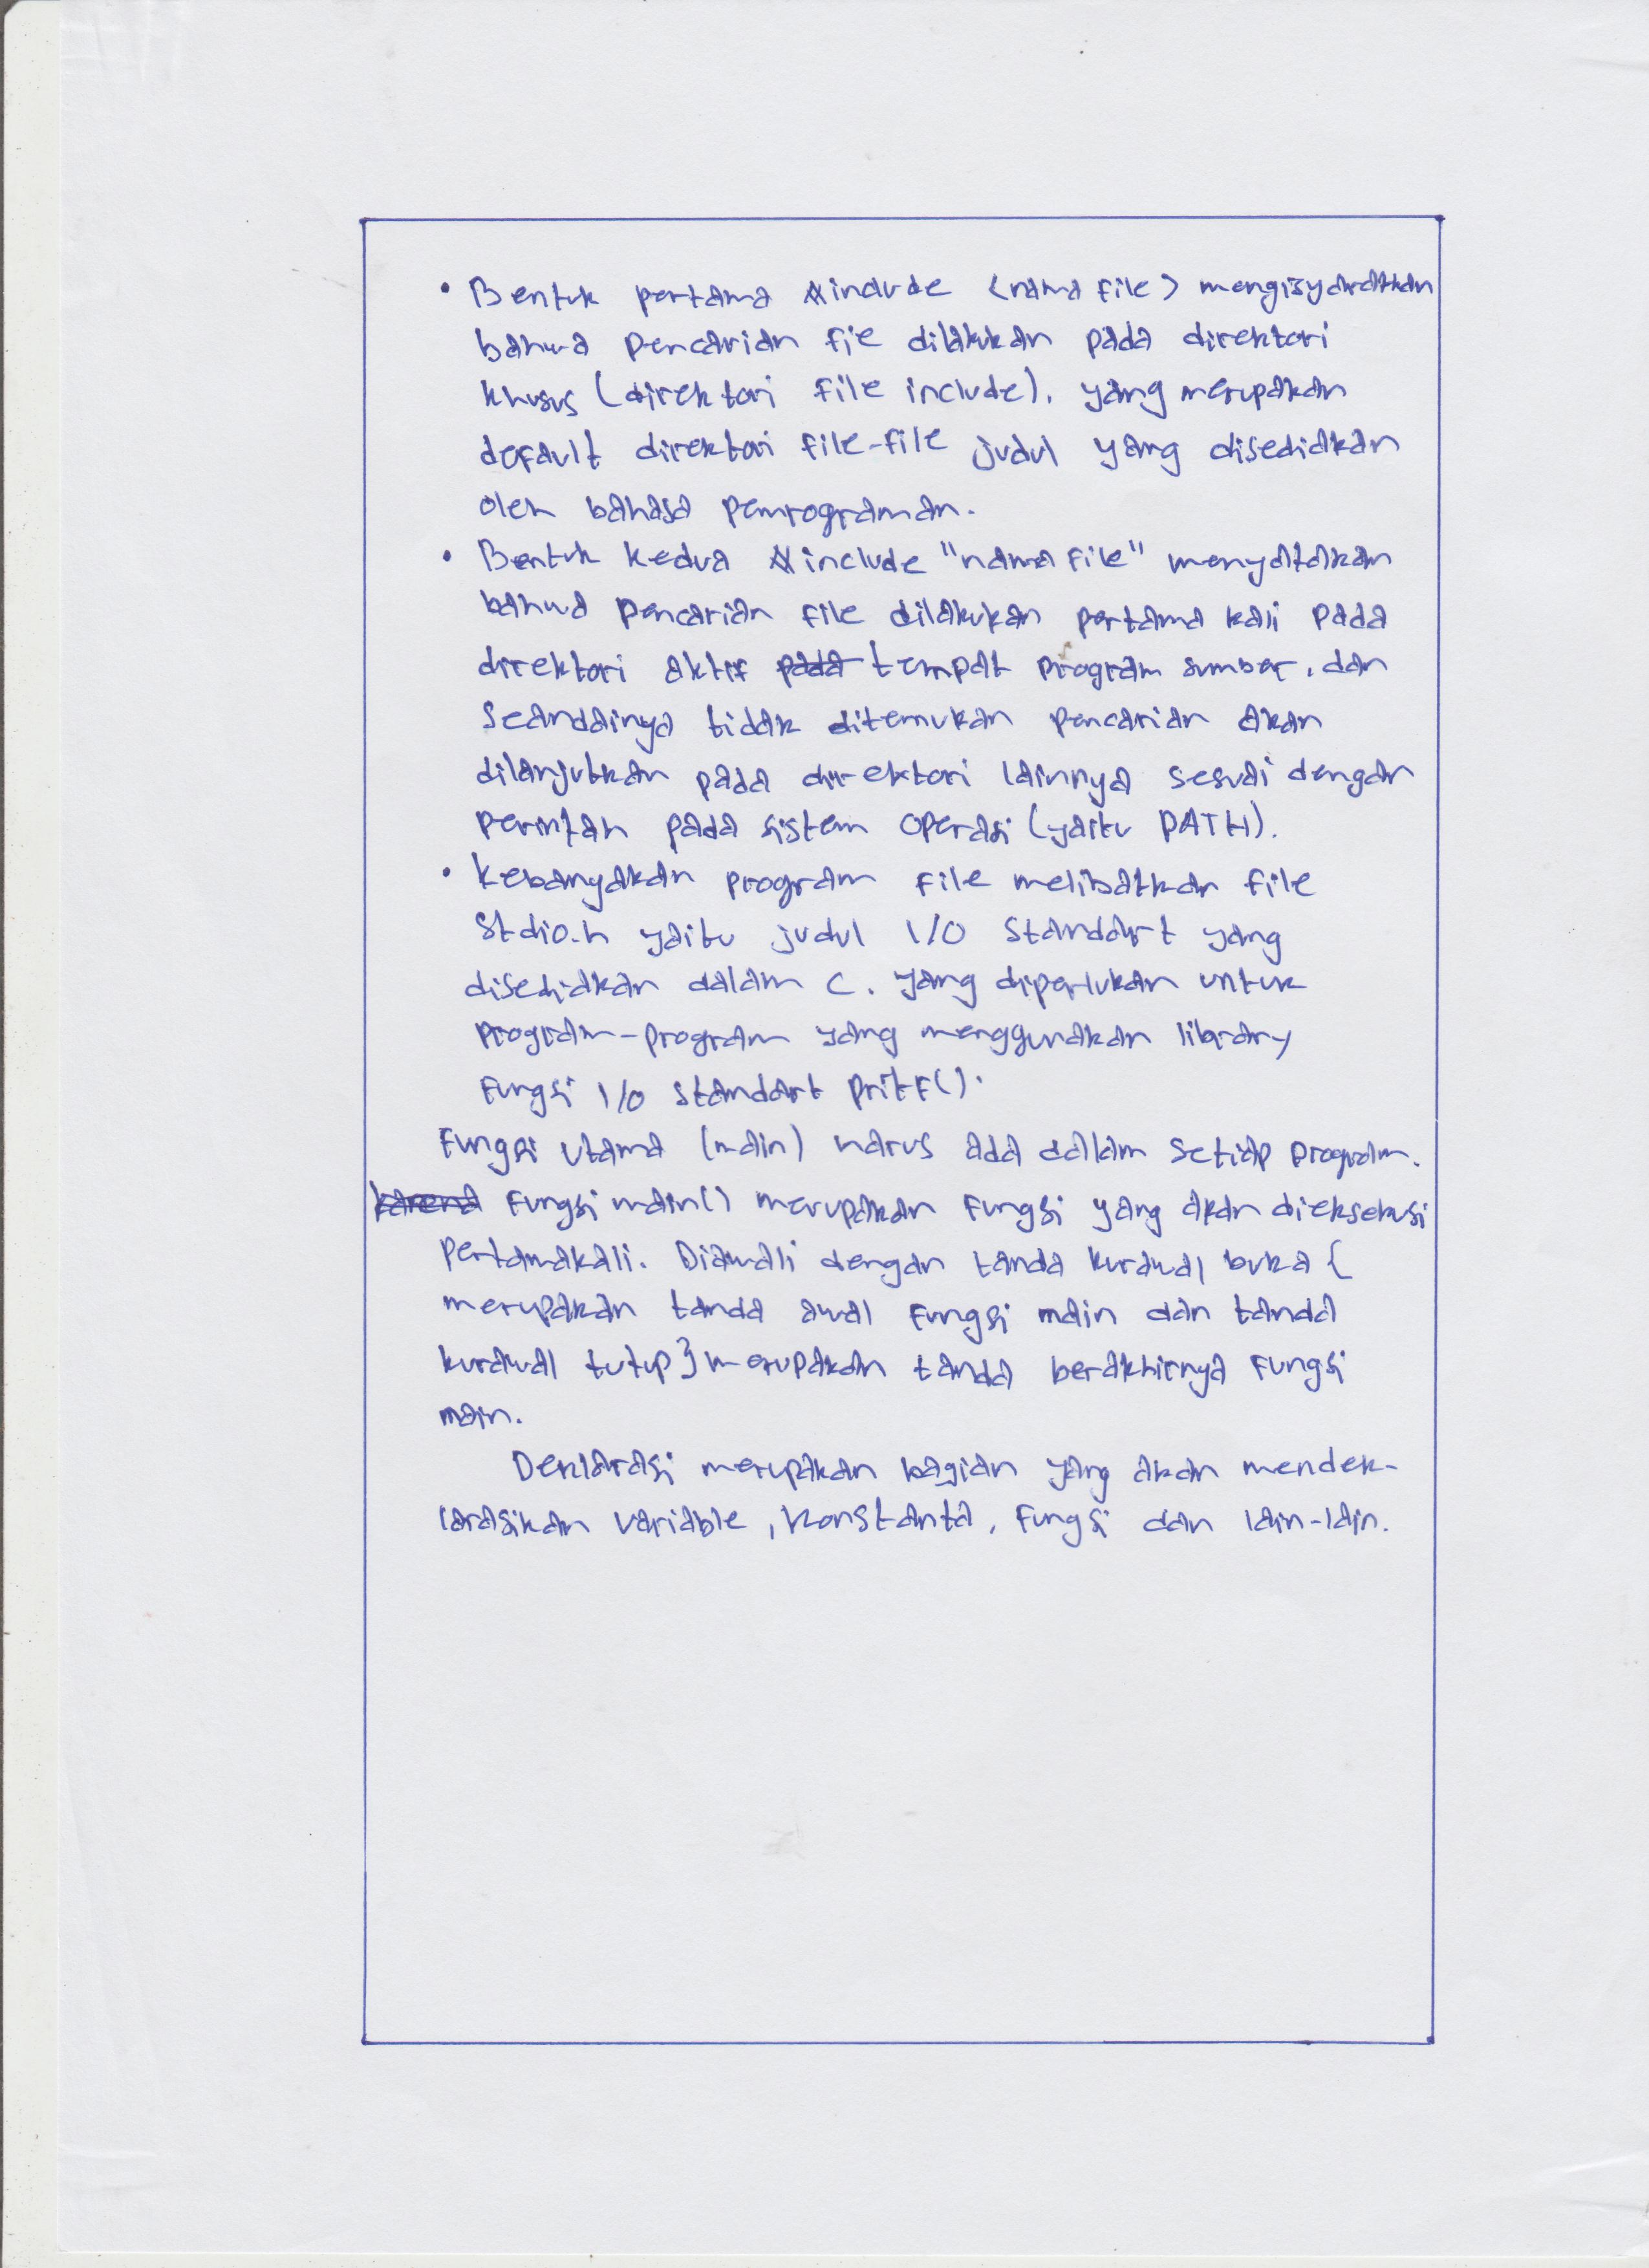 • Bentuk pertama #include <nama file> mengisyaratkan
bahwa pencarian fie dilakukan pada direktori
khusus (direktori file include). yang merupakan
default direktori file-file judul yang disediakan
oleh bahasa pemrograman.
• Bentuk kedua #include "nama file" menyatakan
bahwa pencarian file dilakukan pertama kali pada
direktori aktif pada tempat program sumber, dan
seandainya tidak ditemukan pencarian akan
dilanjutkan pada direktori lainnya sesuai dengan
perintah pada sistem operasi (yaitu PATH).
• Kebanyakan program file melibatkan file
stdio.h yaitu judul I/O standart yang
disediakan dalam C. yang diperlukan untuk
program-program yang menggunakan library
fungsi I/O standart pritf().
Fungsi utama (main) harus ada dalam setiap program.
karena fungsi main() merupakan fungsi yang akan dieksekusi
pertamakali. Diawali dengan tanda kurawal buka {
merupakan tanda awal fungsi main dan tanda
kurawal tutup } merupakan tanda berakhirnya fungsi
main.
Deklarasi merupakan bagian yang akan mendek-
larasikan variable, konstanta, fungsi dan lain-lain.